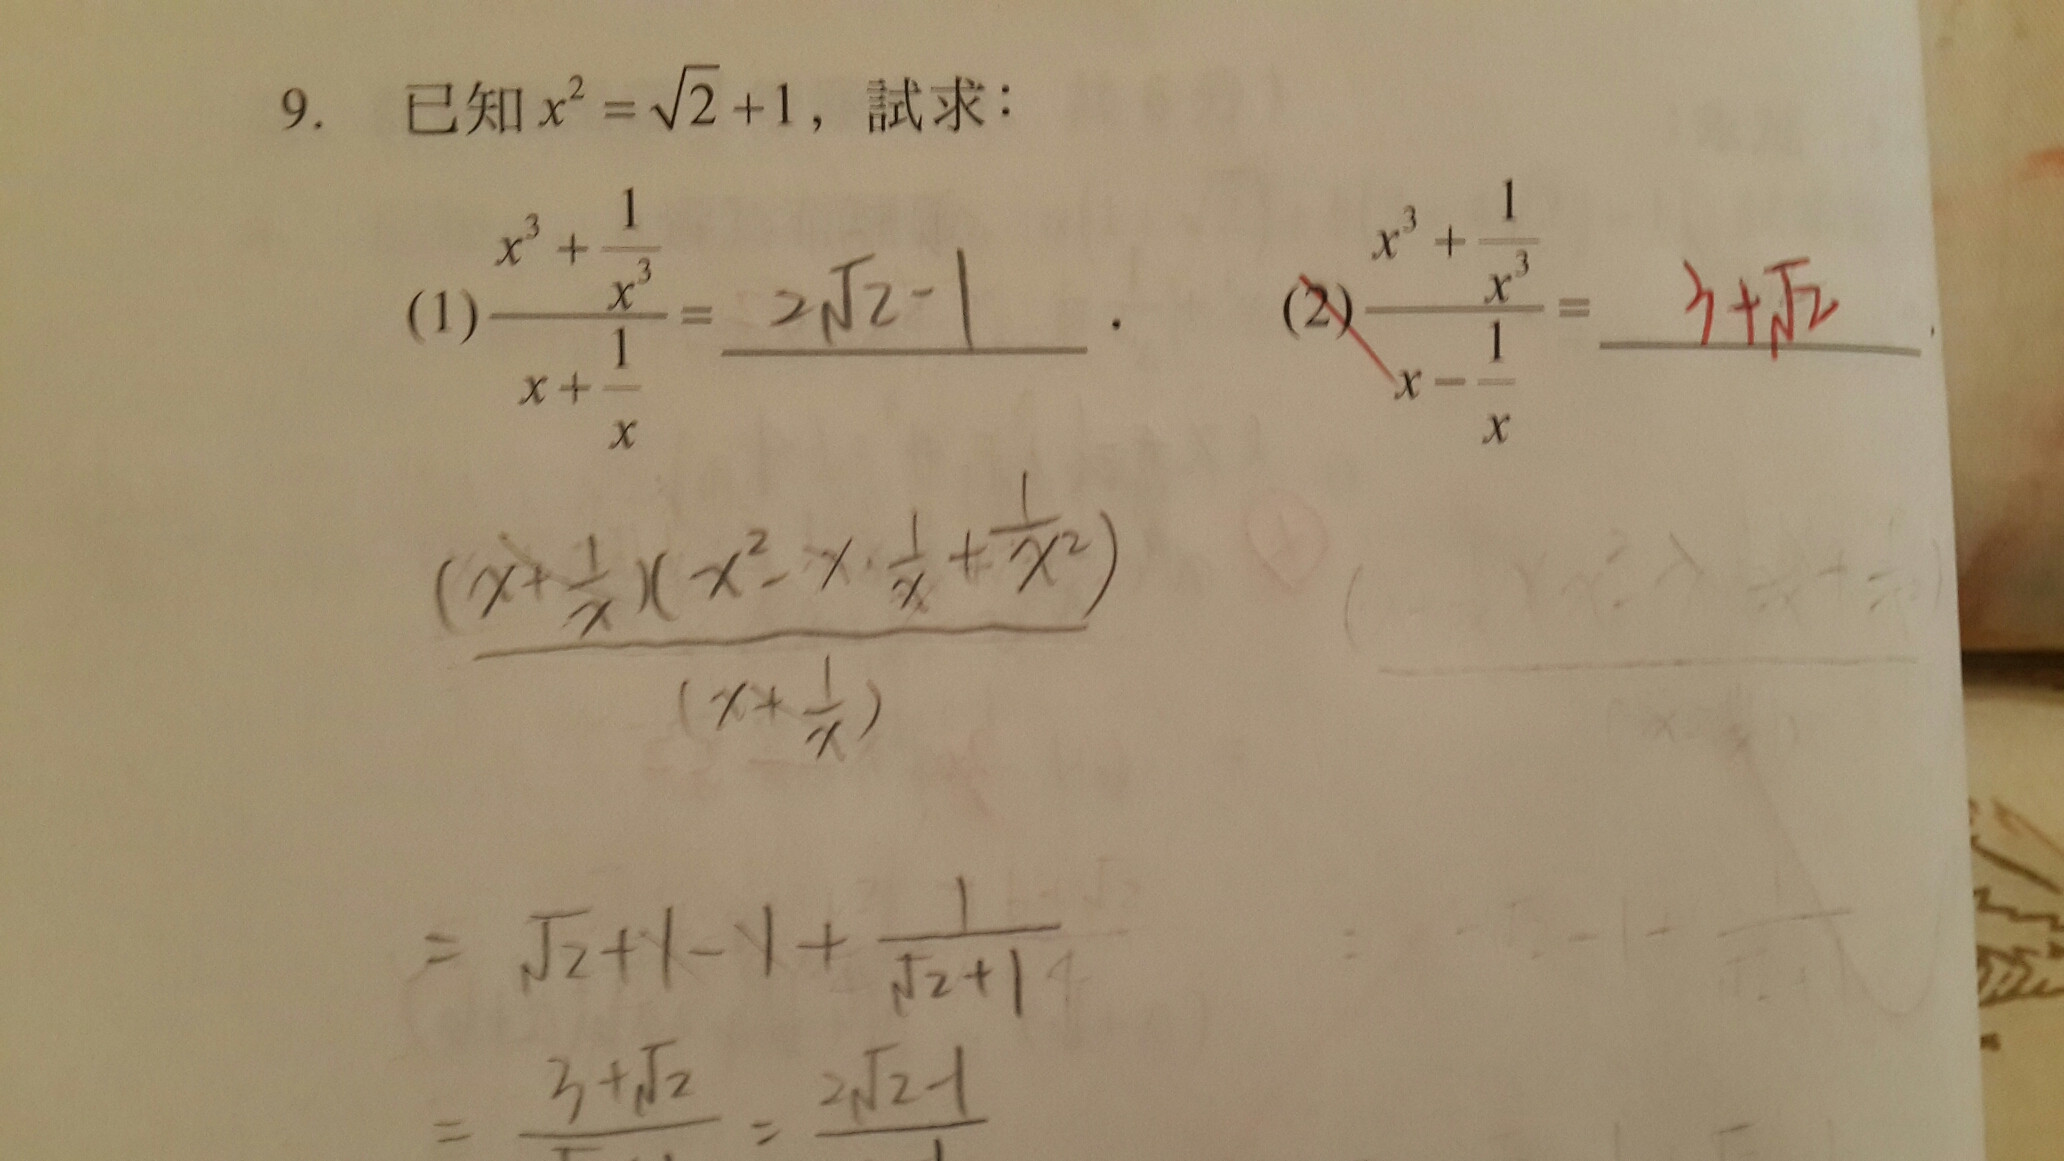 9. 已知 x² = √2 + 1，試求：
(1) (x³ + 1/x³)/(x + 1/x) = 2√2 - 1 . (2) (x³ + 1/x³)/(x - 1/x) = 3 + √2 .
(x + 1/x)(x² - x · 1/x + 1/x²)
(x + 1/x)
= √2 + 1 - 1 + 1/(√2 + 1)
= 3 + √2 = 2√2 - 1